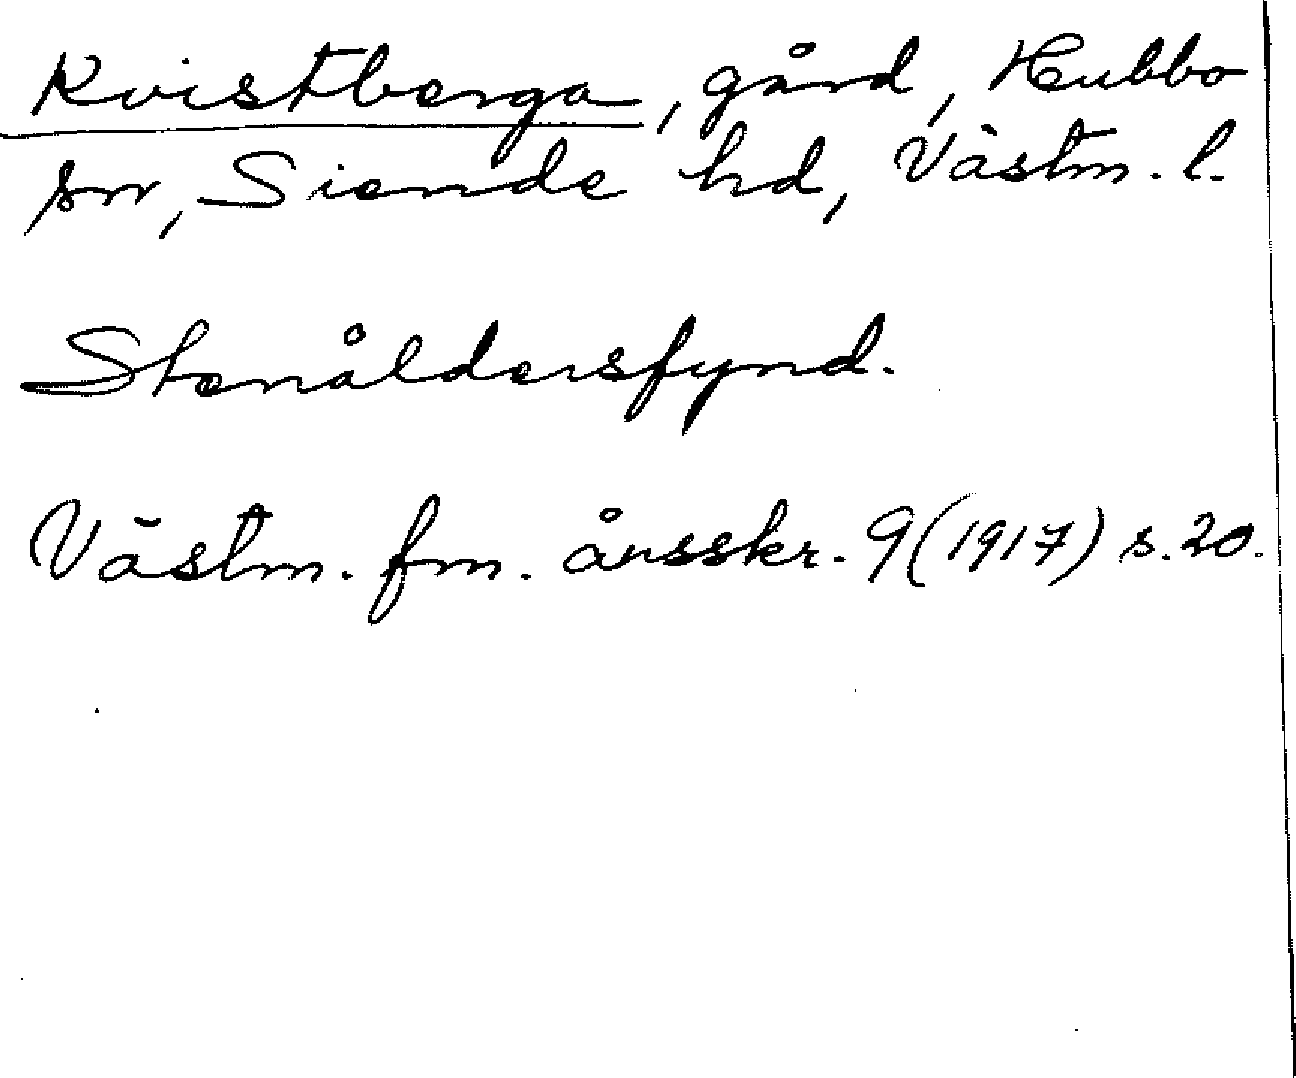 Kvistberga, gård, Hubbo
sn, Siende hd, Västm. l.
Stenåldersfynd.
Västm. fm. årsskr. 9 (1917) s. 20.